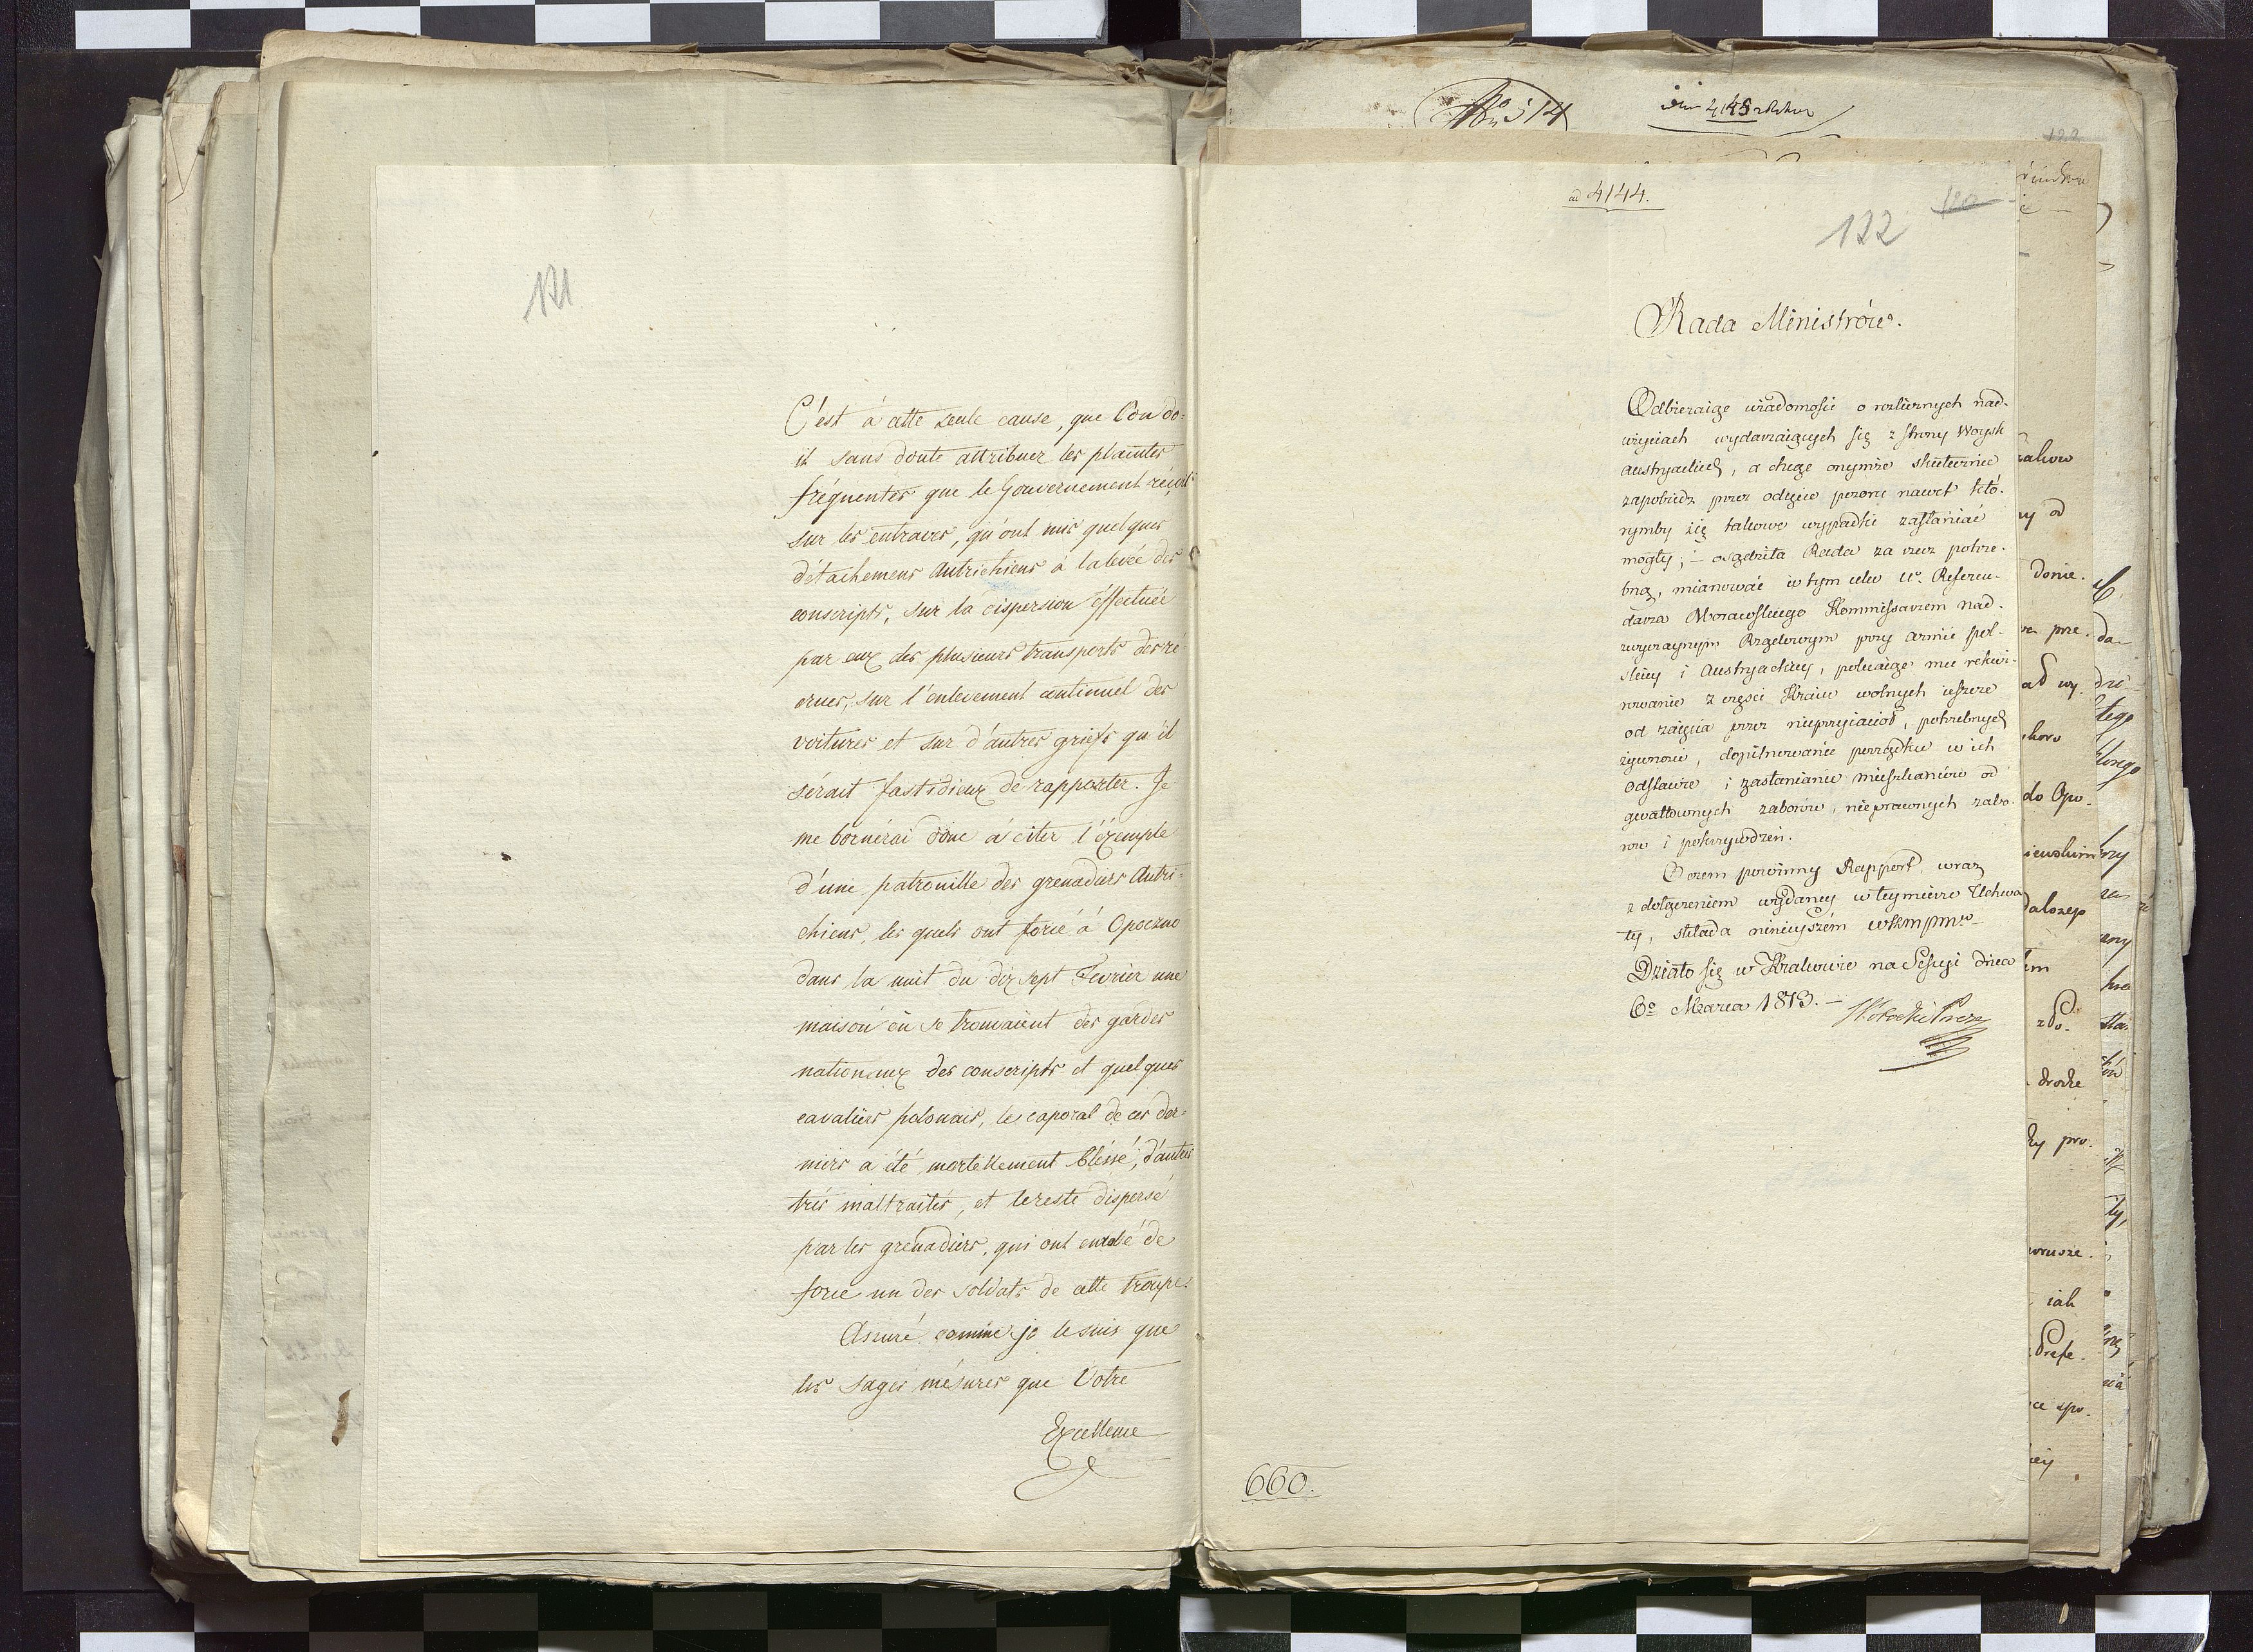 121
C'est à cette seule cause, que l'on do=
it sans doute attribuer les plaintes
fréquentes que le Gouvernement reçoit
sur les entraves, qu'ont mis quelques
détachemens Autrichiens à la levée des
conscripts, sur la dispersion éffectuée
par eux des plusieurs transports des re
crues, sur l'enlevement continuel des
voitures et sur d'autres griefs qu'il
sérait fastidieux de rapporter. Je
me bornérai donc à citer l'éxemple
d'une patrouille des grenadiers Autri=
chiens, les quels ont forcé à Opoczno
dans la nuit du dix sept Fevrier une
maison où se trouvaient des gardes
nationaux des conscripts et quelques
cavaliers polonais, le caporal de ces der=
niers a été mortellement blessé, d'autres
très maltraités, et le reste dispersé
par les grénadiers, qui ont enrolé de
force un des soldats de cette troupe.
Assuré comme je le suis que
les sages mésures que Votre
Excellence
No 514
4145
122
ad 4144.
122
Rada Ministrów.
Odbieraiąc wiadomości o rozlicznych nad=
użyciach wydarzaiących się z strony Woysk
austryackich, a chcąc onymże skutecznie
zapobiedz przez odięcie pozoru nawet któ=
rymby się takowe wypadki zasłaniać
mogły; – osądziła Rada za rzecz potrze=
bną, mianować w tym celu Ur. Referen=
darza Morawskiego Kommissarzem nad=
zwyczaynym Rządowym przy armii pol=
skiey i Austryackiey, polecaiąc mu rekwi=
rowanie z części Kraiu wolnych ieszcze
od zaięcia przez nieprzyiaciół, potrzebnych
żywności, dopilnowanie porządku w ich
odstawie i zasłanianie mieszkańców od
gwałtownych zaborów, nieprawnych zabo=
rów i pokrzywdzeń.
O czem powinny Rapport, wraz
z dołączeniem wydaney w teymierze Uchwa
ły, składa ninieyszém
Działo się w Krakowie na Sessyi dnia
6o Marca 1813. –
660.
ny od
donie.
do Opo=
dalszego
drodze
ky pro=
iak
Prefe=